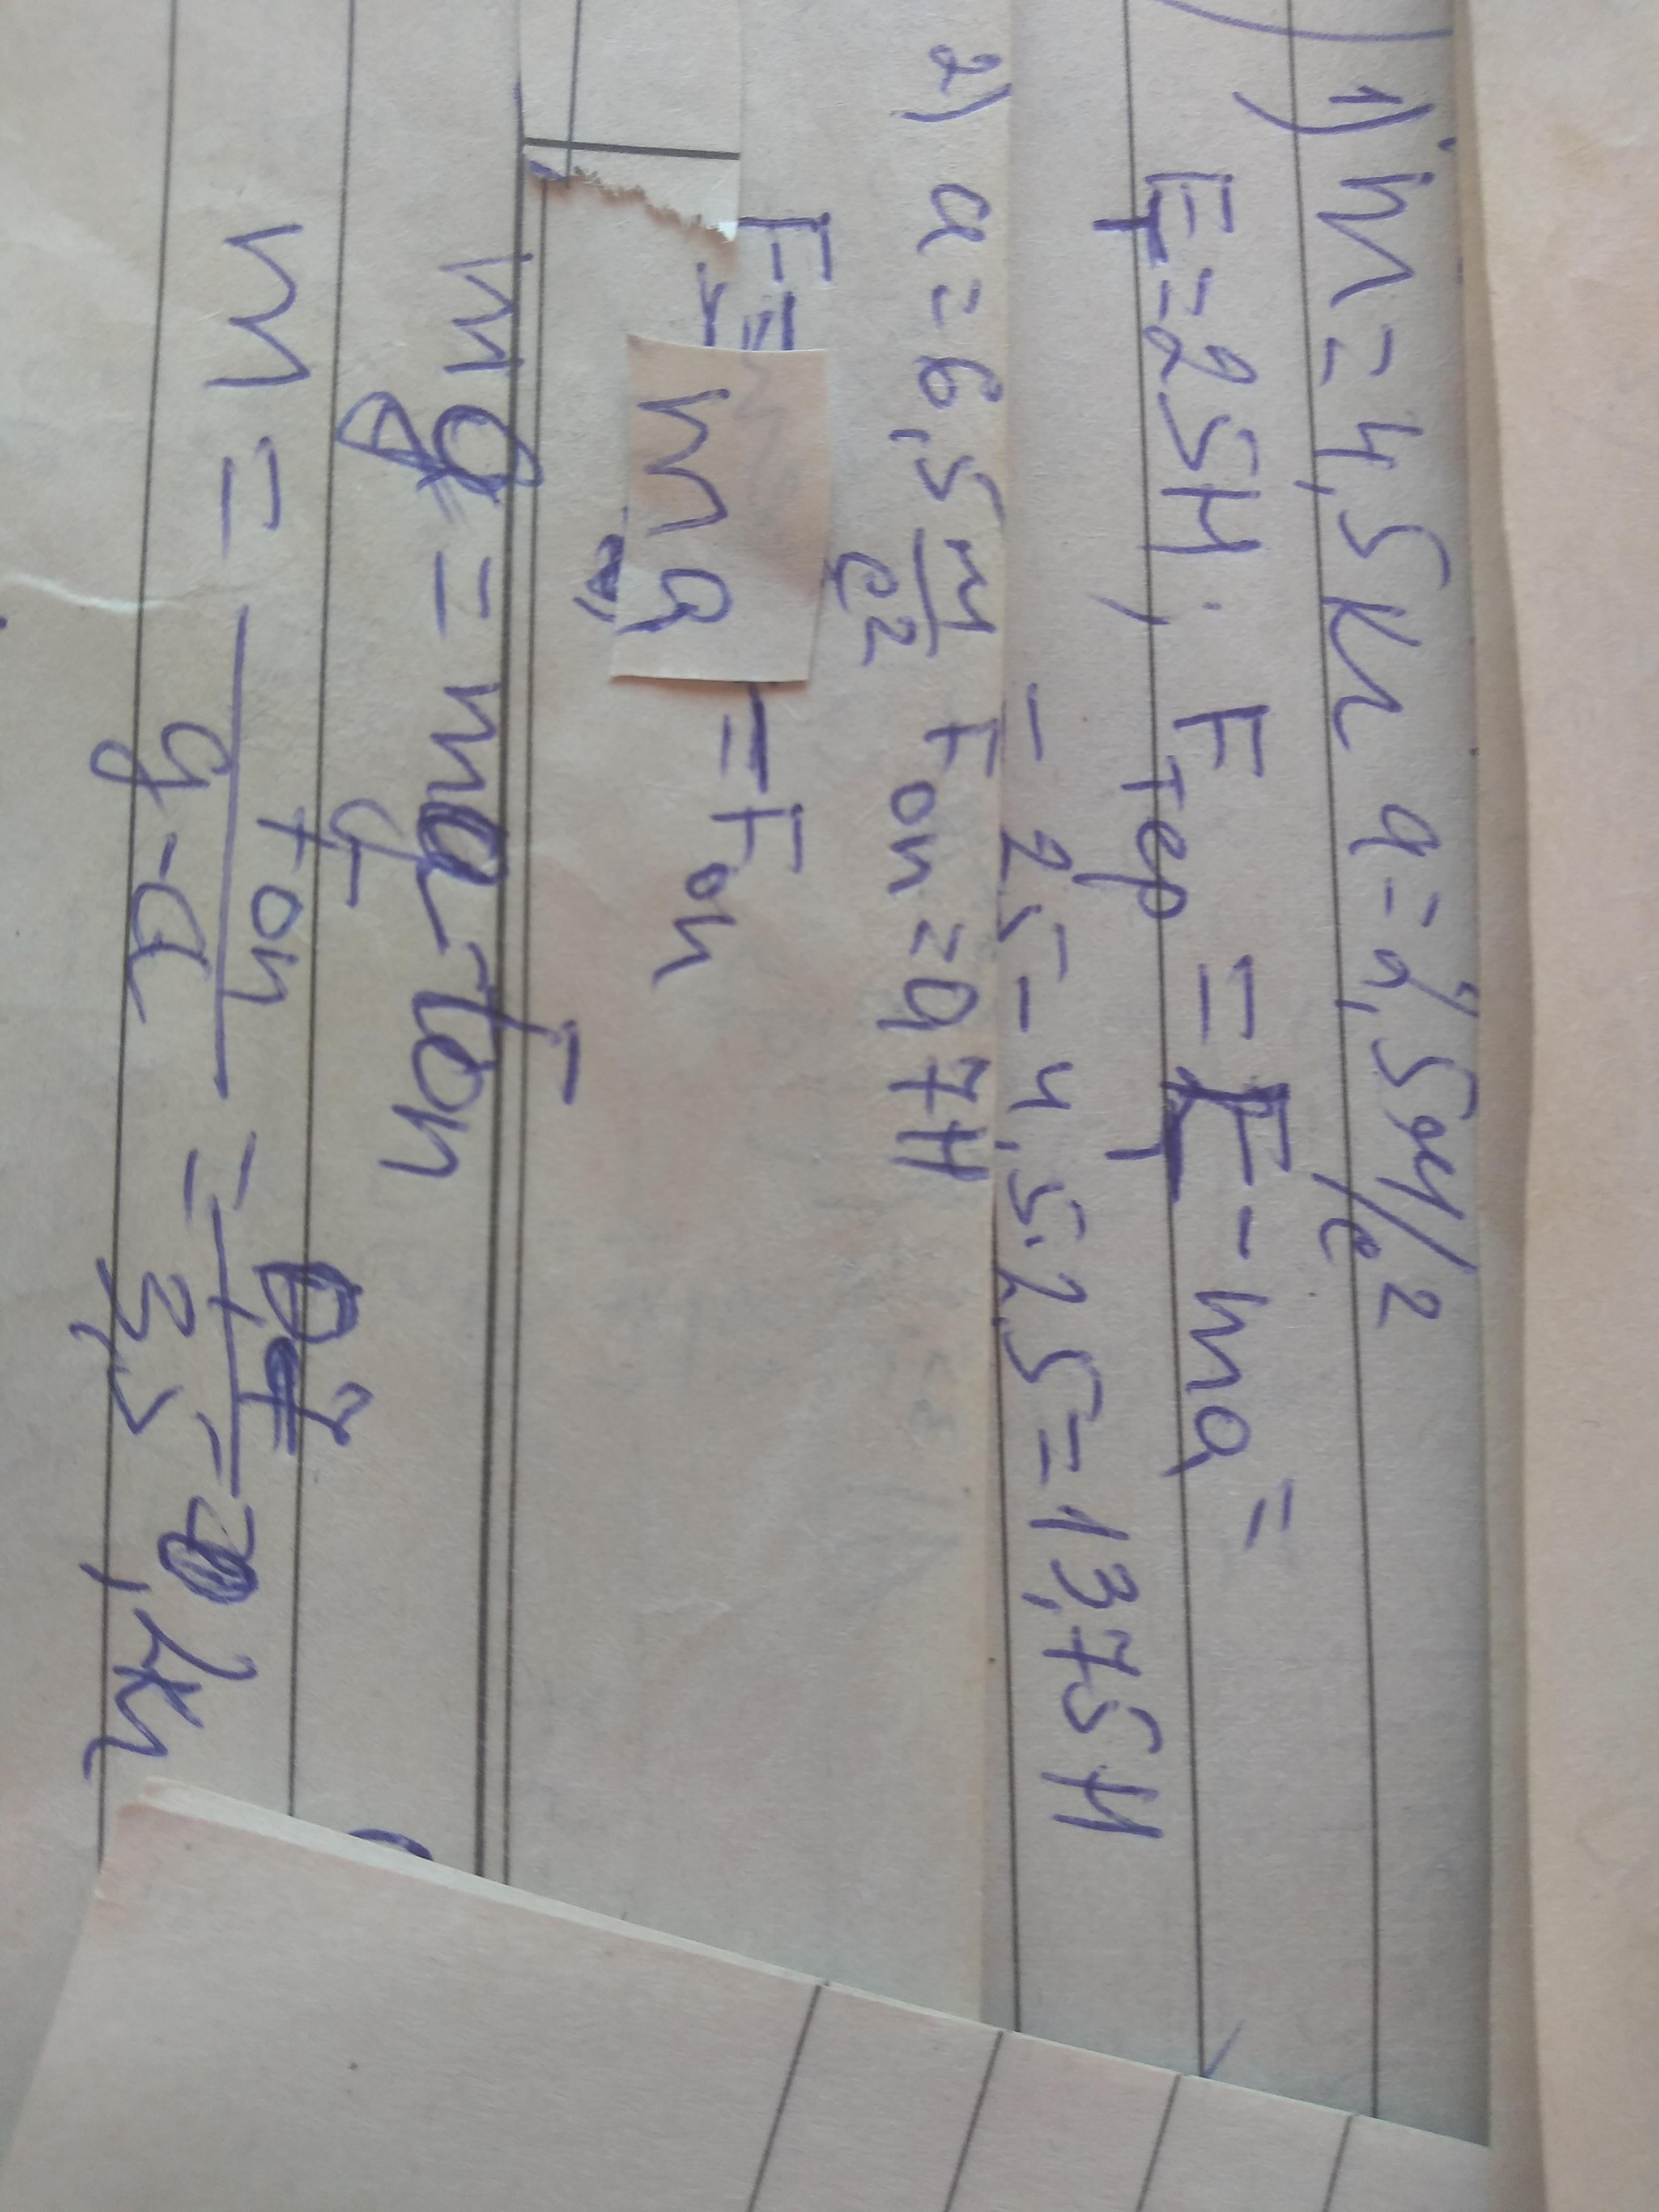 1) m = 4,5 кг a = 2,5 м/с²
Fт = 25Н; Fтер = Fт - ma =
= 25 - 4,5·2,5 = 13,75Н
2) a = 6,5 м/с² Fоп = 97Н
F = ma = Fоп
mg = ma - Fоп
m = Fоп / g-a = / 3,5 = , кг